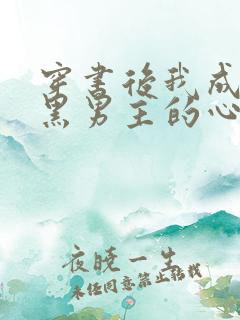 穿书后我成
黑男主的心
夜晓一生
未经同意禁止转载